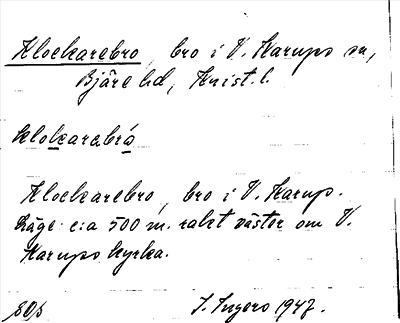 Klockarebro, bro i V. Karups sn,
Bjäre hd, Krist. l.
klokarebrå
Klockarebro, bro i V. Karup.
Läge c:a 500 m. rakt väster om V.
Karups kyrka.
S. Ingers 1947.